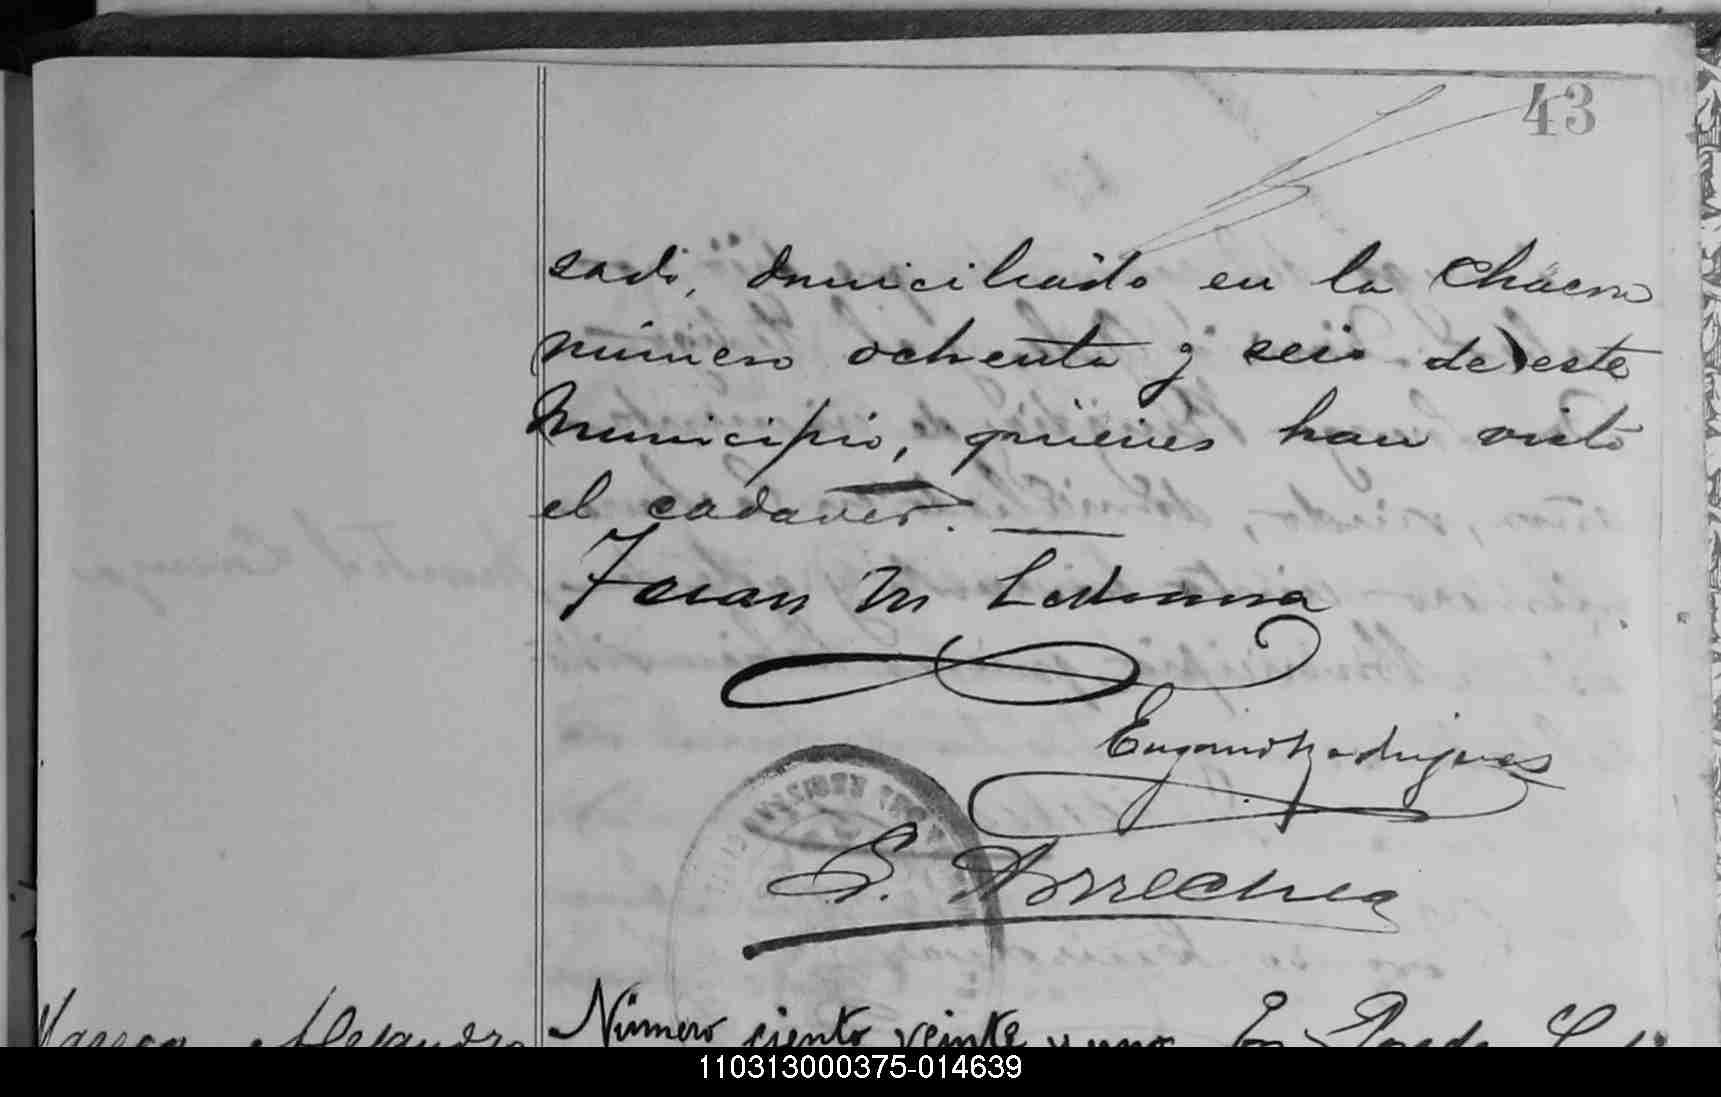 43
sado, domiciliado en la Chacra
número ochenta y seis de este
Municipio, quienes han visto
el cadaver.
Juan M Ledesma
Eugenio Rodrigues
E. Arrechea
Alejandro
Número ciento veinte y uno En
110313000375-014639